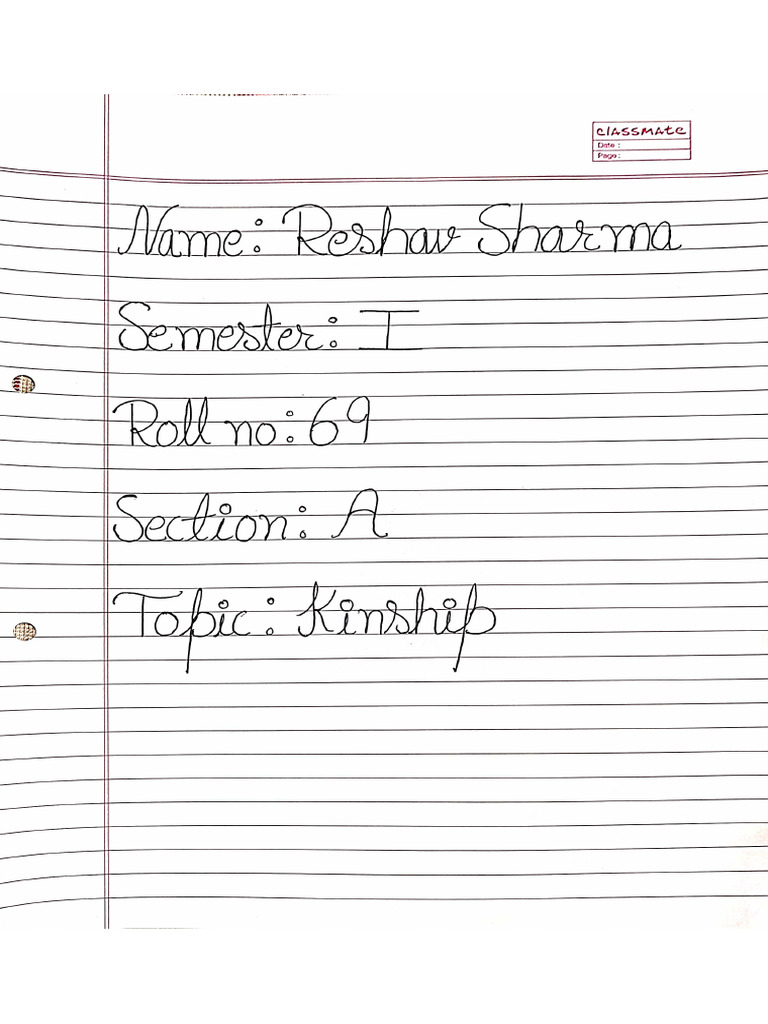 classmate
Date :
Page :
Name: Reshav Sharma
Semester: I
Roll no: 69
Section: A
Topic: Kinship